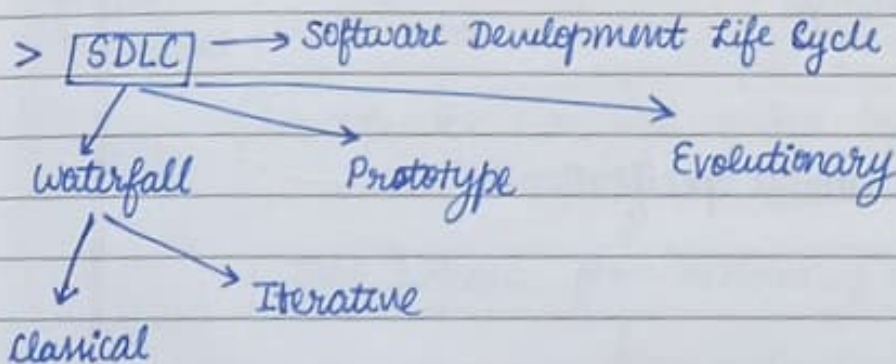 > SDLC → Software Development Life Cycle
Waterfall Prototype Evolutionary
Iterative
Classical